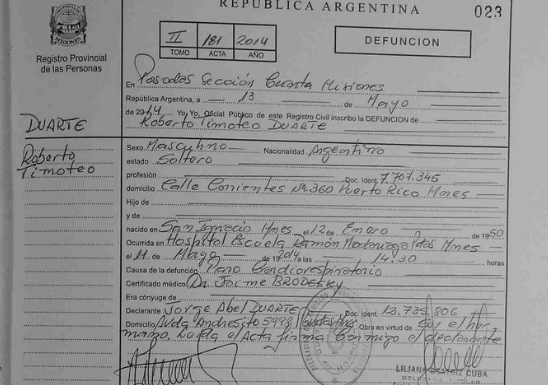 REPÚBLICA ARGENTINA
023
Registro Provincial
de las Personas
II 181 2014
TOMO ACTA AÑO
DEFUNCION
En Posadas Sección Cuarta Misiones
República Argentina, a 13 de Mayo
de 2014 Yo, Oficial Público de este Registro Civil inscribo la DEFUNCION de
Roberto Timoteo DUARTE
DUARTE
Roberto
Timoteo
Sexo Masculino Nacionalidad Argentino
estado Soltero
profesión Doc. Ident. 7.707.345
domicilio Calle Corrientes Nº 360 Puerto Rico Mnes
Hijo de
y de
nacido en San Ignacio Mnes el 12 de Enero de 1950
Ocurrida en Hospital Escuela Ramón Madariaga Pdas Mnes
el 11 de Mayo de 2014 a las 14:30 horas
Causa de la defunción Paro Cardiorespiratorio
Certificado médico Dr Jaime BRODESKY
Era cónyuge de
Declarante Jorge Abel DUARTE Doc. Ident. 12.735.806
Domicilio Avda Andresito 5998 Posdas Mnes Obra en virtud de Ser el her
mano, Leída el Acta firma conmigo el declarante
LILIANA BEATRIZ CUBA
DELEGADA TITULAR